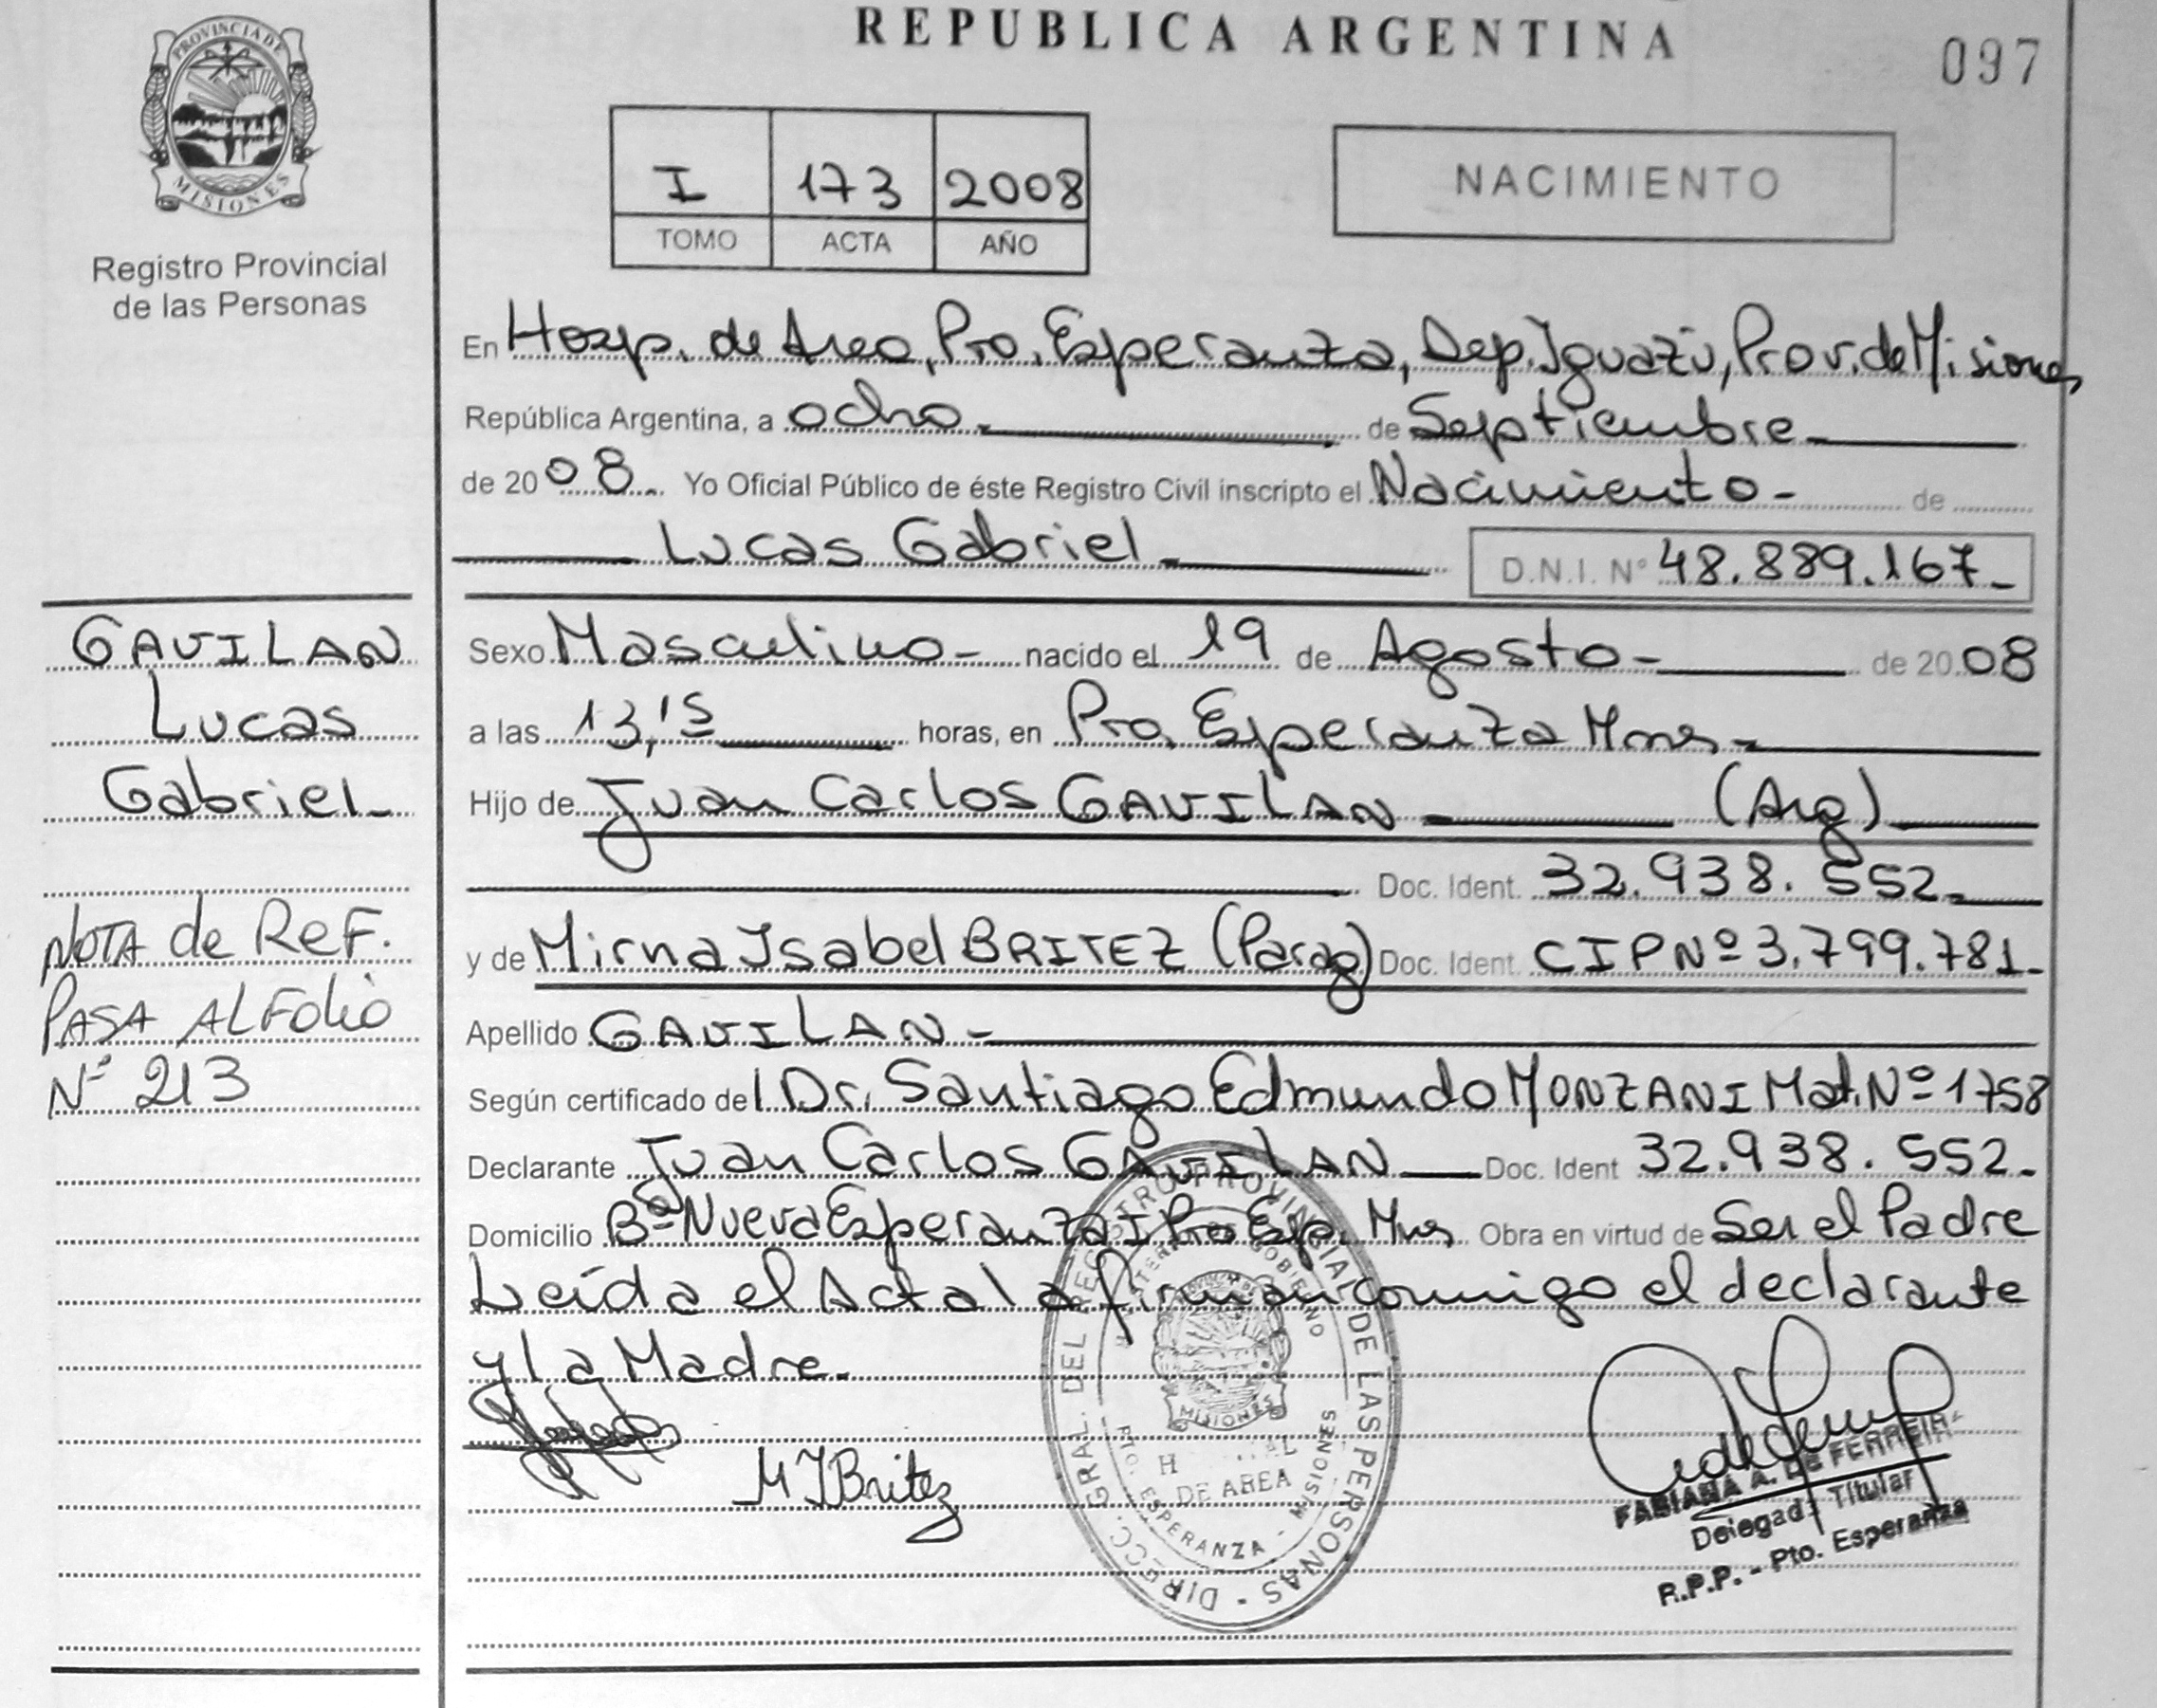 REPUBLICA ARGENTINA
097
PROVINCIA DE
MISIONES
Registro Provincial
de las Personas
I 173 2008
TOMO ACTA AÑO
NACIMIENTO
En Hosp. de Area, Pto. Esperanza, Dep. Iguazú, Prov. de Misiones
República Argentina, a ocho de Septiembre
de 2008 Yo Oficial Público de éste Registro Civil inscripto el Nacimiento - de
Lucas Gabriel
D.N.I. Nº 48.889.167-
GAVILAN
Lucas
Gabriel-
Sexo Masculino - nacido el 19 de Agosto - de 2008
a las 13,15 horas, en Pto. Esperanza Mnes -
Hijo de Juan Carlos GAVILAN (Arg)
Doc. Ident. 32.938.552-
y de Mirna Isabel BRITEZ (Parag) Doc. Ident. CIP Nº 3.799.781-
Apellido GAVILAN -
NOTA de REF.
PASA AL FOLIO
Nº 213
Según certificado del Dr. Santiago Edmundo MONZANI Mat. Nº 1758
Declarante Juan Carlos GAVILAN Doc. Ident 32.938.552-
Domicilio Bº Nueva Esperanza I Pto Esp. Mnes Obra en virtud de Ser el Padre
Leída el Acta la firman conmigo el declarante
y la Madre.
M I Britez
DIRECC. GRAL. DEL REGISTRO PROVINCIAL DE LAS PERSONAS -
MINISTERIO DE GOBIERNO
MISIONES
DE AREA
PTO. ESPERANZA - MISIONES
FABIANA A. DE FERREIRA
Delegada Titular
R.P.P. - Pto. Esperanza